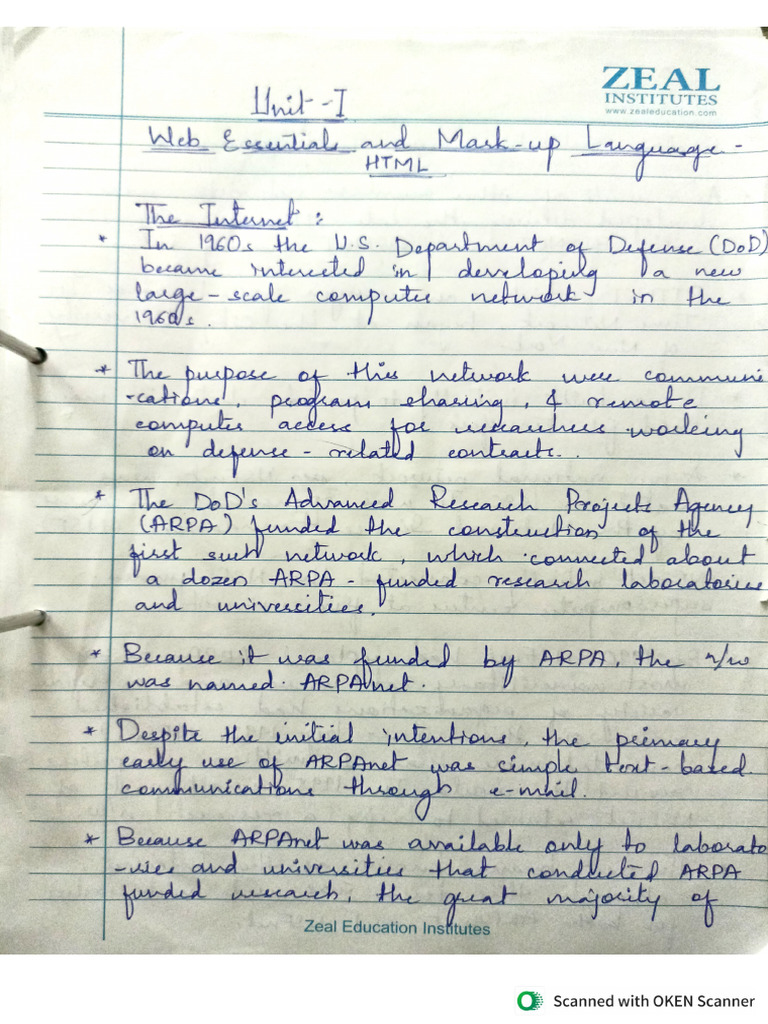 ZEAL
INSTITUTES
www.zealeducation.com
Unit-I
Web Essentials and Mark-up Language -
HTML
The Internet :
* In 1960s the U.S. Department of Defense (DoD)
became interested in developing a new
large-scale computer network in the
1960s.
* The purpose of this network were communi
-cations, program sharing, & remote
computer access for researchers working
on defense-related contracts.
* The DoD's Advanced Research Projects Agency
(ARPA) funded the construction of the
first such network, which connected about
a dozen ARPA-funded research laboratories
and universities.
* Because it was funded by ARPA, the n/w
was named ARPAnet.
* Despite the initial intentions, the primary
early use of ARPAnet was simple text-based
communications through e-mail.
* Because ARPAnet was available only to laborato
-ries and universities that conducted ARPA
funded research, the great majority of
Zeal Education Institutes
Scanned with OKEN Scanner